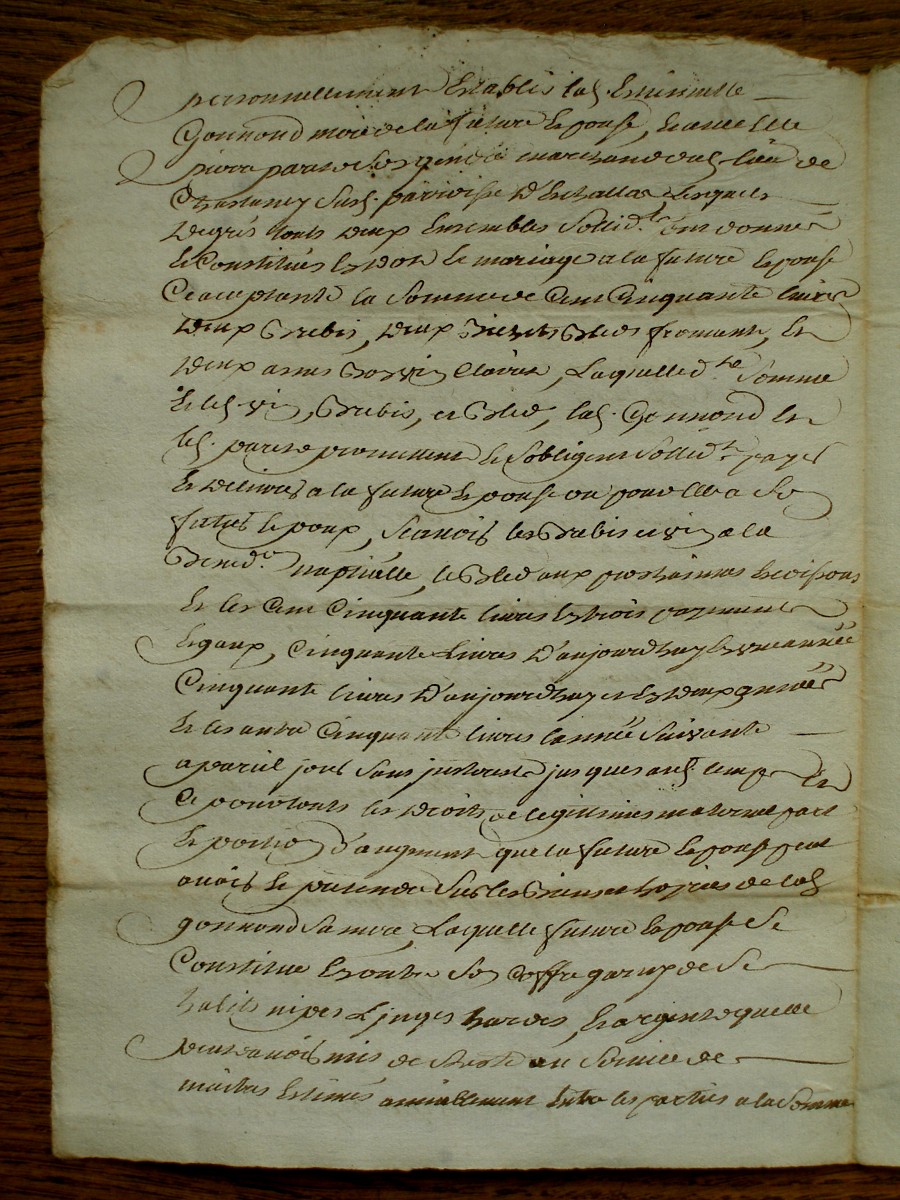 personnellement Establis lad. Estiennette
Gonnond mère de la future Espouse, Et avec Elle
pierre parade son gendre marchand dud. lieu de
Chassagny susd. parroisse D'Eschallas, Lesquels
de grés touts deux Ensembles Sollid.t ont donné
Et Constitués En dot Et mariage a la future Espouse
Ce acceptante la Somme de Cent Cinquante livres
deux Brebis, deux Bichets Bled fromant, Et
deux annés Bon vin Clairet, Laquelled.te Somme
Et led. vin, Brebis, et Bled, lad. Gonnond Et
led. parade promettent Et sobligent Sollid.t payer
Et delivrer a la future Espouse ou pour Elle a Son
futur Espoux, Scavoir les Brebis et vin a la
Bened.on nuptialle, le Bled aux prochaines Recoissons
Et les Cent Cinquante livres En trois payments
Egaux, Cinquante Livres D'aujourdhuy En une année
Cinquante livres D'aujourdhuy et En deux années
Et les autre Cinquante livres lannée Suivante
a pareil jour Sans jnterests jusques aud. temps Et
Ce pour touts les droits de legitimes maternel part
Et portion d'augment que la future Espouse peut
avoir Et pretendre Sur les Biens et hoiries de lad.
gonnond Sa mere, Laquelle future Espouse Se
Constitue En outre Son Coffre garny de Se
habits nipes Linges hardes, Et argent quelle
peut avoir mis de Reste au Service de
maitres Estimés amiablement Entre les parties a la Somme